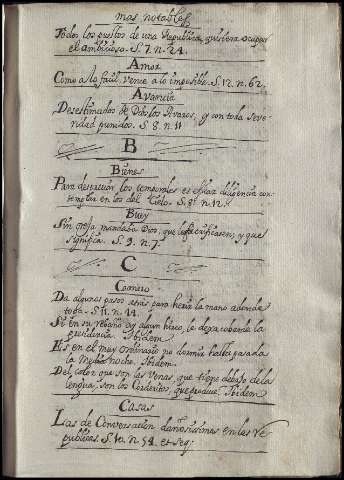 mas notables.
Todos los puestos de una Republica, quisiera ocupar
el ambicioso. S. 7. n. 24.
Amor
Como a lo facil, vence a lo imposible. S. 12. n. 62,
Avaricia
Desestimados de Dios los Avaros, y con toda seve-
ridad punidos. S. 8. n. 11
B
Bienes
Para despreciar los temporales es eficaz diligencia con-
templar en los del Cielo. S. 3. n. 12.
Buey
Sin oreja mandaba Dios, que le sacrificasen; y que
significa. S. 9. n. 7
C
Carnero
Da algunos pasos atras para herir la mano adonde
toda. S. 11. n. 44.
Si en su rebaño ay algun hixo, le dexa
prudencia. Ibidem.
Es en el muy ordinario no dormir hasta pasada
la Media noche. Ibidem.
Del color que son las venas, que tiene debajo de la
lengua, son los Corderitos, que produce. Ibidem.
Casas
Las de Conversacion dañosisimas en las Re
publicas. S. 10. n. 54. et seq.